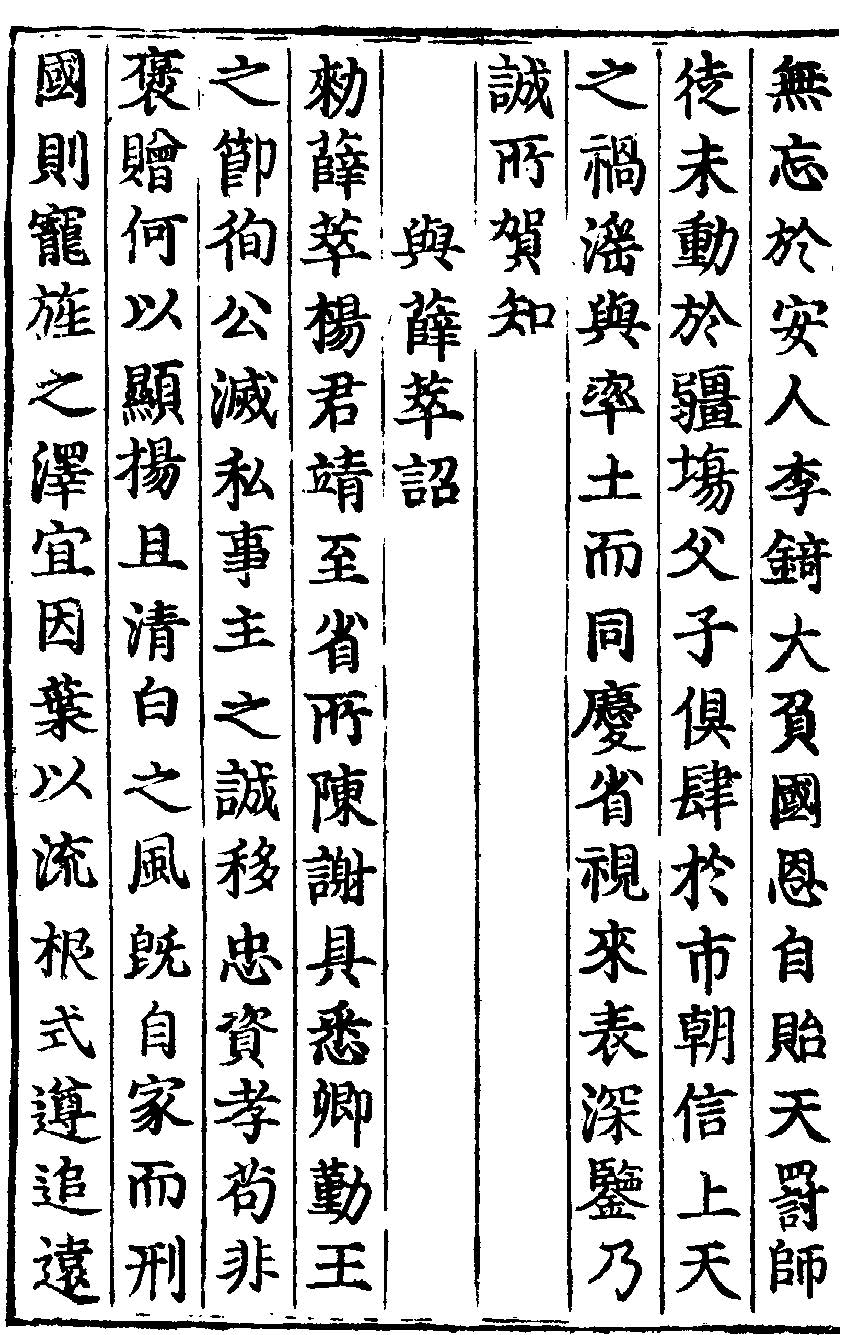 無忘於安人李錡大負國恩自貽天罰師
徒未動於疆塲父子俱肆於市朝信上天
之禍滛與率土而同慶省視來表深鑒乃
誠所賀知
與薛萃詔
勑薛萃楊君靖至省所陳謝具悉卿勤王
之節徇公滅私事主之誠移忠資孝苟非
褒贈何以顯揚且清白之風旣自家而刑
國則寵旌之澤宜因葉以流根式遵追遠